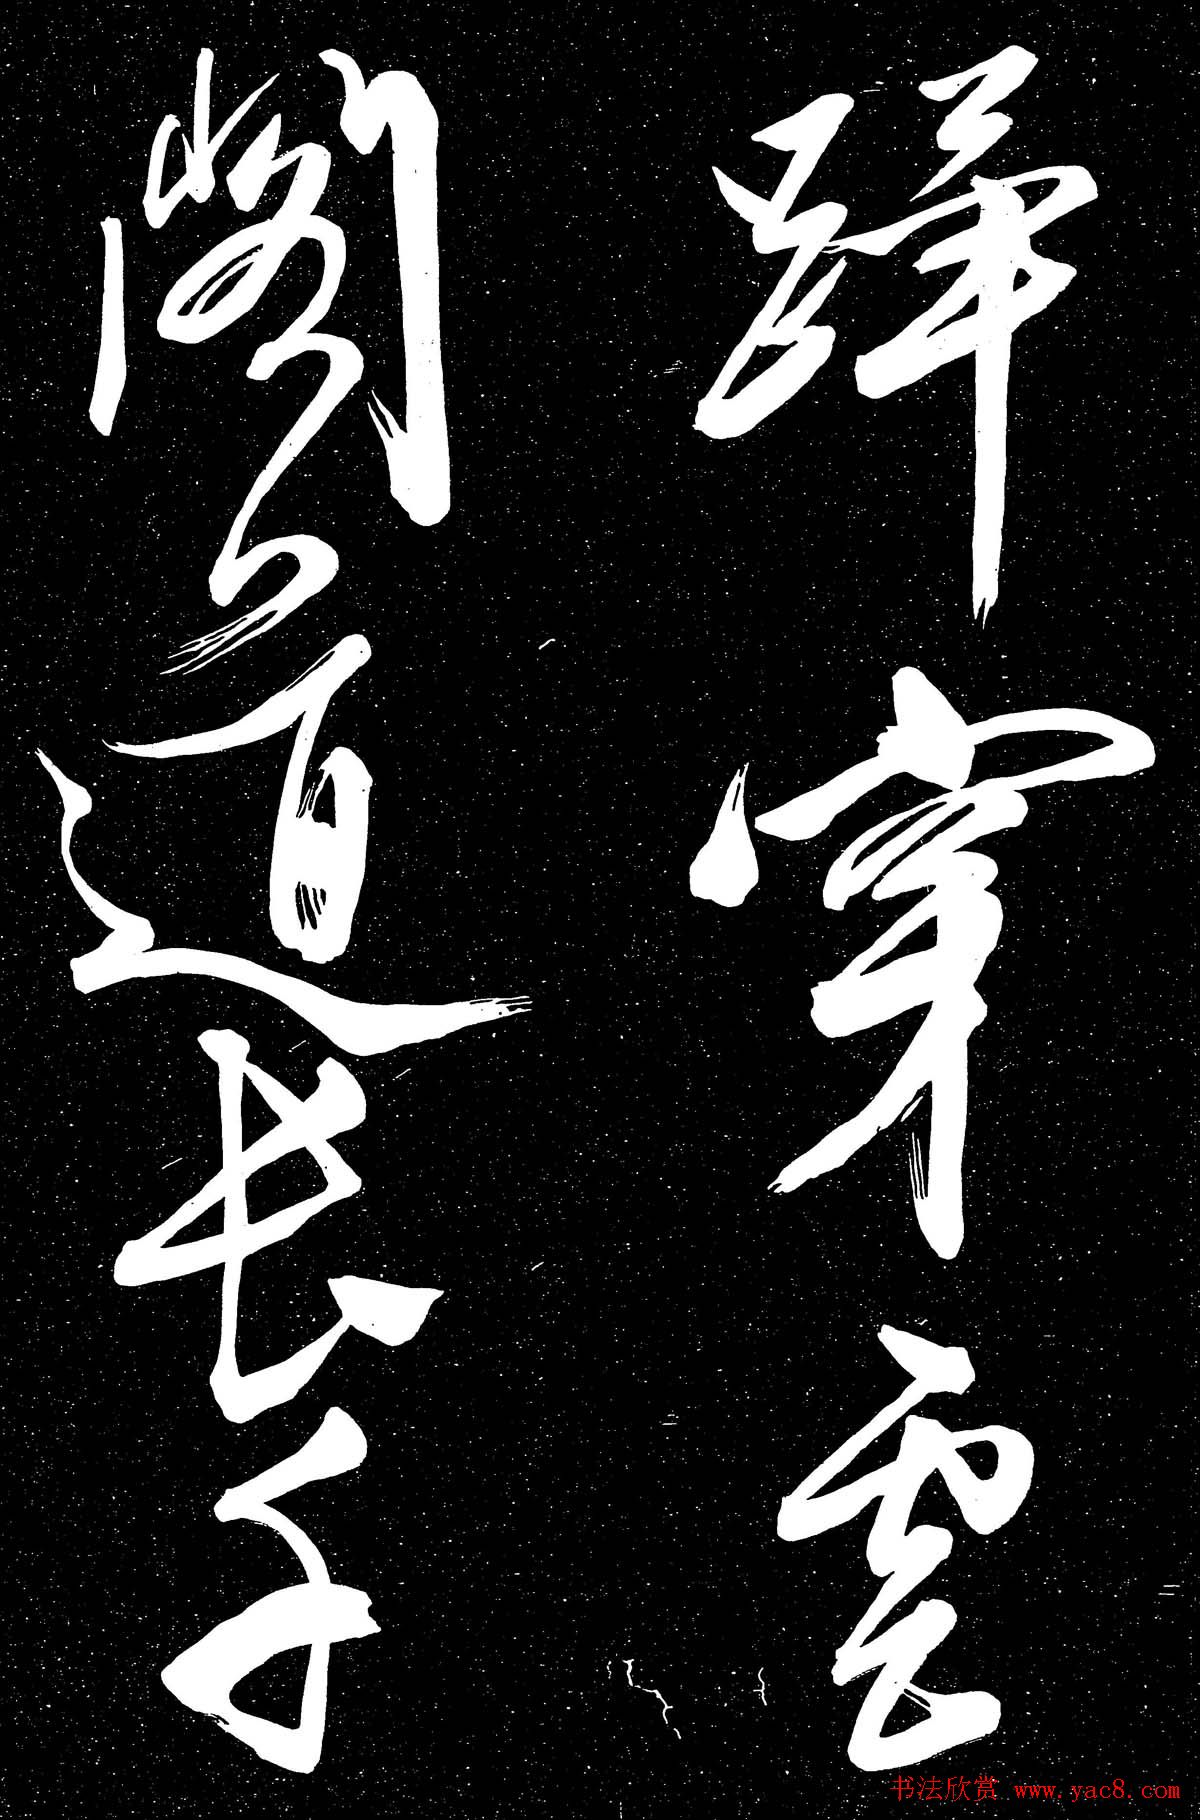 蹕穿雲
閣道長千
书法欣赏 www.yac8.com